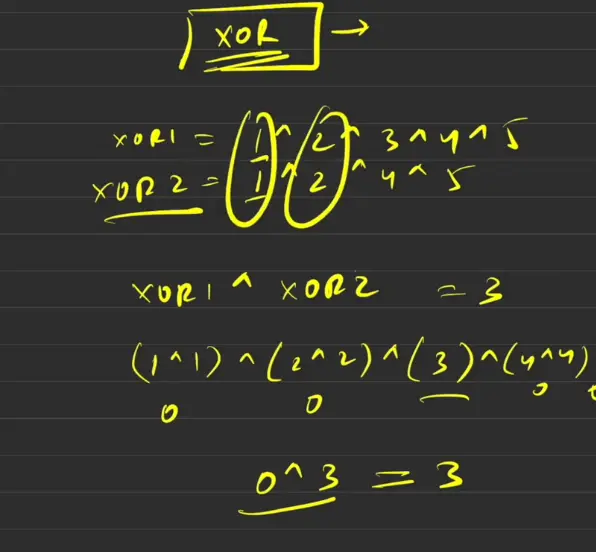 XOR →
XOR1 = 1 ^ 2 ^ 3 ^ 4 ^ 5
XOR2 = 1 ^ 2 ^ 4 ^ 5
XOR1 ^ XOR2 = 3
(1^1) ^ (2^2) ^ (3) ^ (4^4)
0 0 0
0^3 = 3